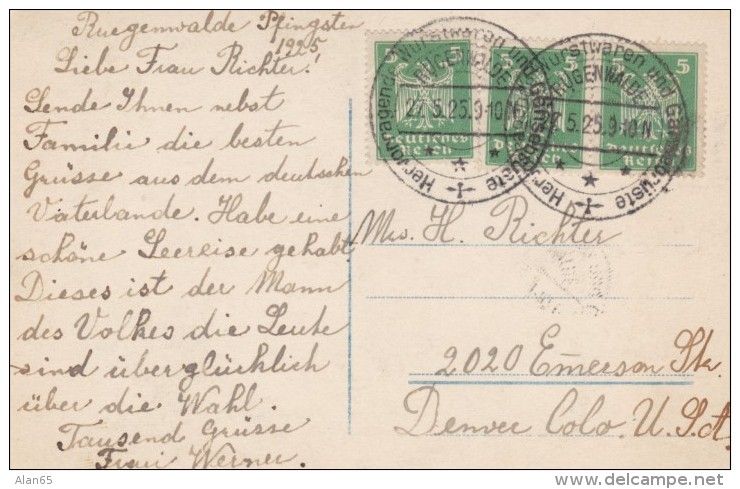 Ruegenwalde Pfingsten
1925
Liebe Frau Richter!
Sende Ihnen nebst
Familie die besten
Grüsse aus dem deutschen
Vaterlande. Habe eine
schöne Seereise gehabt
Dieses ist der Mann
des Volkes die Leute
sind überglücklich
über die Wahl.
Tausend Grüsse
Frau Werner.
5 5 5
Deutsches Reich
Deutsches Reich
Hervorragende Wurstwaren und Gänsebrüste
RÜGENWALDE
27.5.25.9-10N.
Hervorragende Wurstwaren und Gänsebrüste
RÜGENWALDE
27.5.25.9-10N.
Mrs. H. Richter
2020 Emerson Str.
Denver Colo. U.S.A.
Alan65
delcampe.net